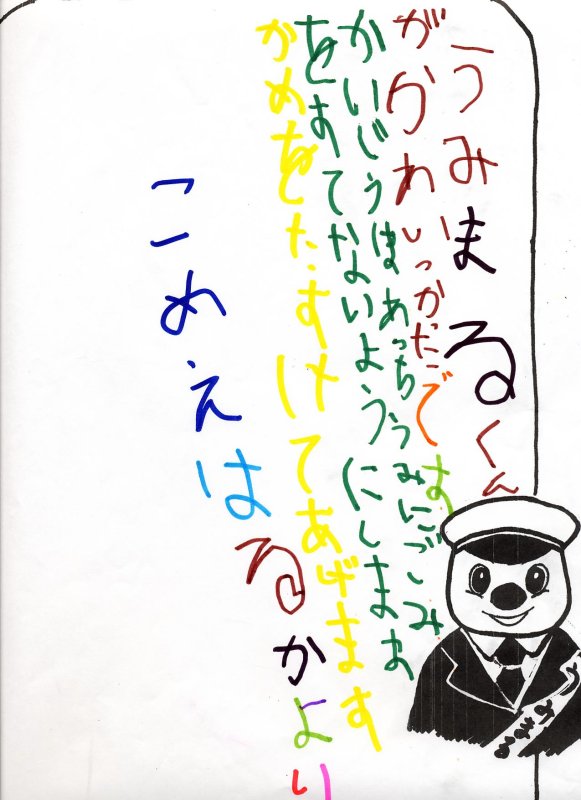 うみまるくん
がかわいっかったです
かいじうほあっちうみにごみ
をすてないようにします
かめをたすけてあげます
こめえはるかより
うみまる